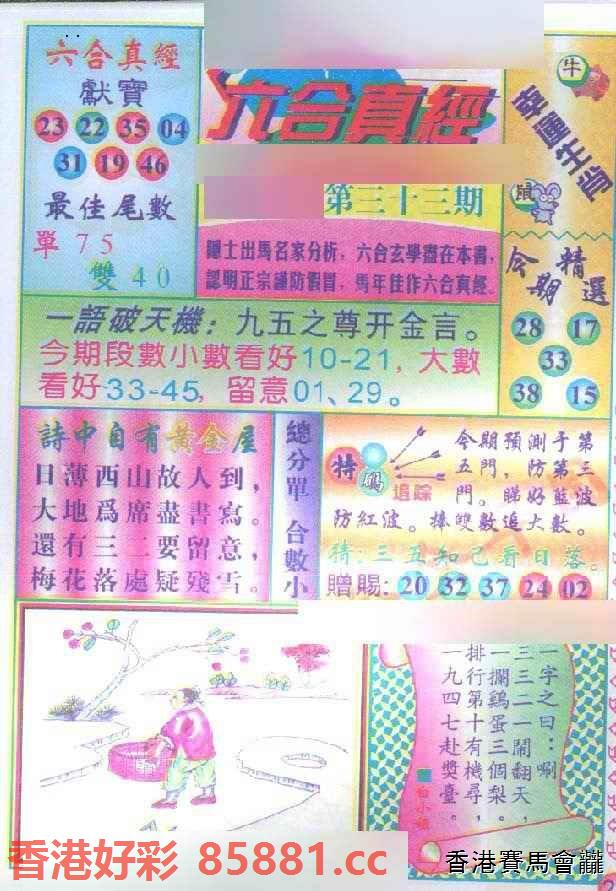 六合真經
獻寶
23 22 35 04
31 19 46
最佳尾數
單75
雙40
六合真經
第三十三期
隱士出馬名家分析，六合玄學盡在本書，
認明正宗謹防假冒，馬年佳作六合真經。
牛
幸運生肖
鼠
今期精選
28 17
33
38 15
一語破天機：九五之尊开金言。
今期段數小數看好10-21，大數
看好33-45，留意01、29。
詩中自有黃金屋
日薄西山故人到，
大地爲席盡書寫。
還有三二要留意，
梅花落處疑殘雪。
總分單 合數小
特碼
追踪
今期預測于第
五門，防第三
門。睇好藍波
防紅波。捧雙數追大數。
猜：三五知己看日落。
贈賜：20 32 37 24 02
一字之曰：唰
三三二一鬧翻天，
一攔鷄蛋三個梨。
排行第十有機尋，
一九四七赴獎臺。
白小姐
香港好彩 85881.cc
香港賽馬會